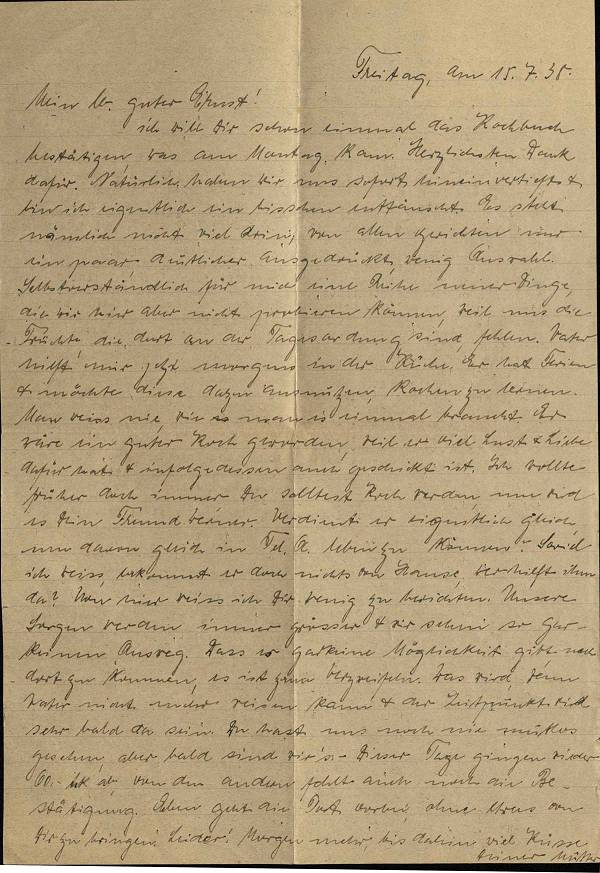 Freitag, am 15.7.38.
Mein lb. guter Ernst!
ich will Dir schon einmal das Kochbuch
bestätigen, was am Montag kam. Herzlichsten Dank
dafür. Natürlich haben wir uns sofort hineinvertieft &
bin ich eigentlich ein bisschen enttäuscht. Es steht
nämlich nicht viel drin, von allen Gerichten nur
ein paar. Deutlicher ausgedrückt, wenig Auswahl.
Selbstverständlich für mich eine Reihe neuer Dinge,
die wir hier aber nicht probieren können, weil uns die
Früchte, die dort an der Tagesordnung sind, fehlen. Vater
hilft mir jetzt morgens in der Küche. Er hat Ferien
& möchte diese dazu ausnützen, kochen zu lernen.
Man weiss nie, wie es man es einmal braucht. Er
wäre ein guter Koch geworden, weil er viel Lust & Liebe
dafür hat & infolgedessen auch geschickt ist. Ich wollte
früher doch immer Du solltest Koch werden, nun wird
es Dein Freund Werner. Verdient er eigentlich gleich
um davon gleich in Tel. A. leben zu können? Soviel
ich weiss, bekommt er doch nichts von Hause, wer hilft ihm
da? Von hier weiss ich Dir wenig zu berichten. Unsere
Sorgen werden immer grösser & wir sehen so gar
keinen Ausweg. Dass es garkeine Möglichkeit gibt nach
dort zu kommen, es ist zum Verzweifeln. Was wird, wenn
Vater nicht mehr reisen kann & der Zeitpunkt wird
sehr bald da sein. Du hast uns noch nie mutlos
gesehen, aber bald sind wir's. - Dieser Tage gingen wieder
60.- Mk ab, von den andern fehlt auch noch die Be-
stätigung. Eben geht die Post vorbei, ohne etwas von
Dir zu bringen. Leider! Morgen mehr, bis dahin viel Küsse
Deiner Mutter